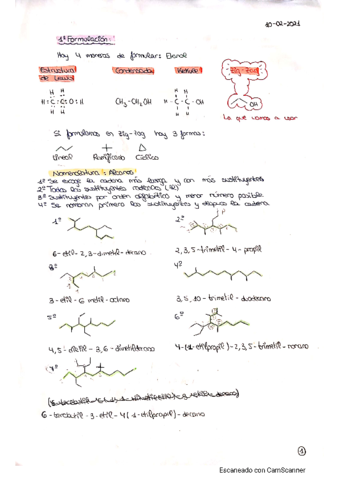 10-02-2021
1º Formulación:
Hay 4 maneras de formular: Etanol
Estructura de Lewis
Condensada
Kekulé
Zig-Zag
H H
H:C:C:O:H
H H
CH3-CH2OH
H H
H-C-C-OH
H H
OH
La que vamos a usar
Si formulamos en zig-zag hay 3 formas:
Lineal
Ramificado
Cíclico
Nomenclatura: Alcanos
1º Se escoge la cadena más larga y con más sustituyentes
2º Todos los sustituyentes
3º Sustituyentes por orden alfabético y menor número posible.
4º Se nombran primero los sustituyentes y después la cadena.
1º
2º
6-etil-2,3-dimetil-decano
2,3,5-trimetil-4-propil
3º
4º
3-etil-6 metil-octano
3,5,10-trimetil-dodecano
5º
6º
4,5-dietil-3,6-dimetildecano
4-(1-etilpropil)-2,3,5-trimetil-nonano
7º
6-tercbutil-3-etil-4(1-etilpropil)-decano
1
Escaneado con CamScanner